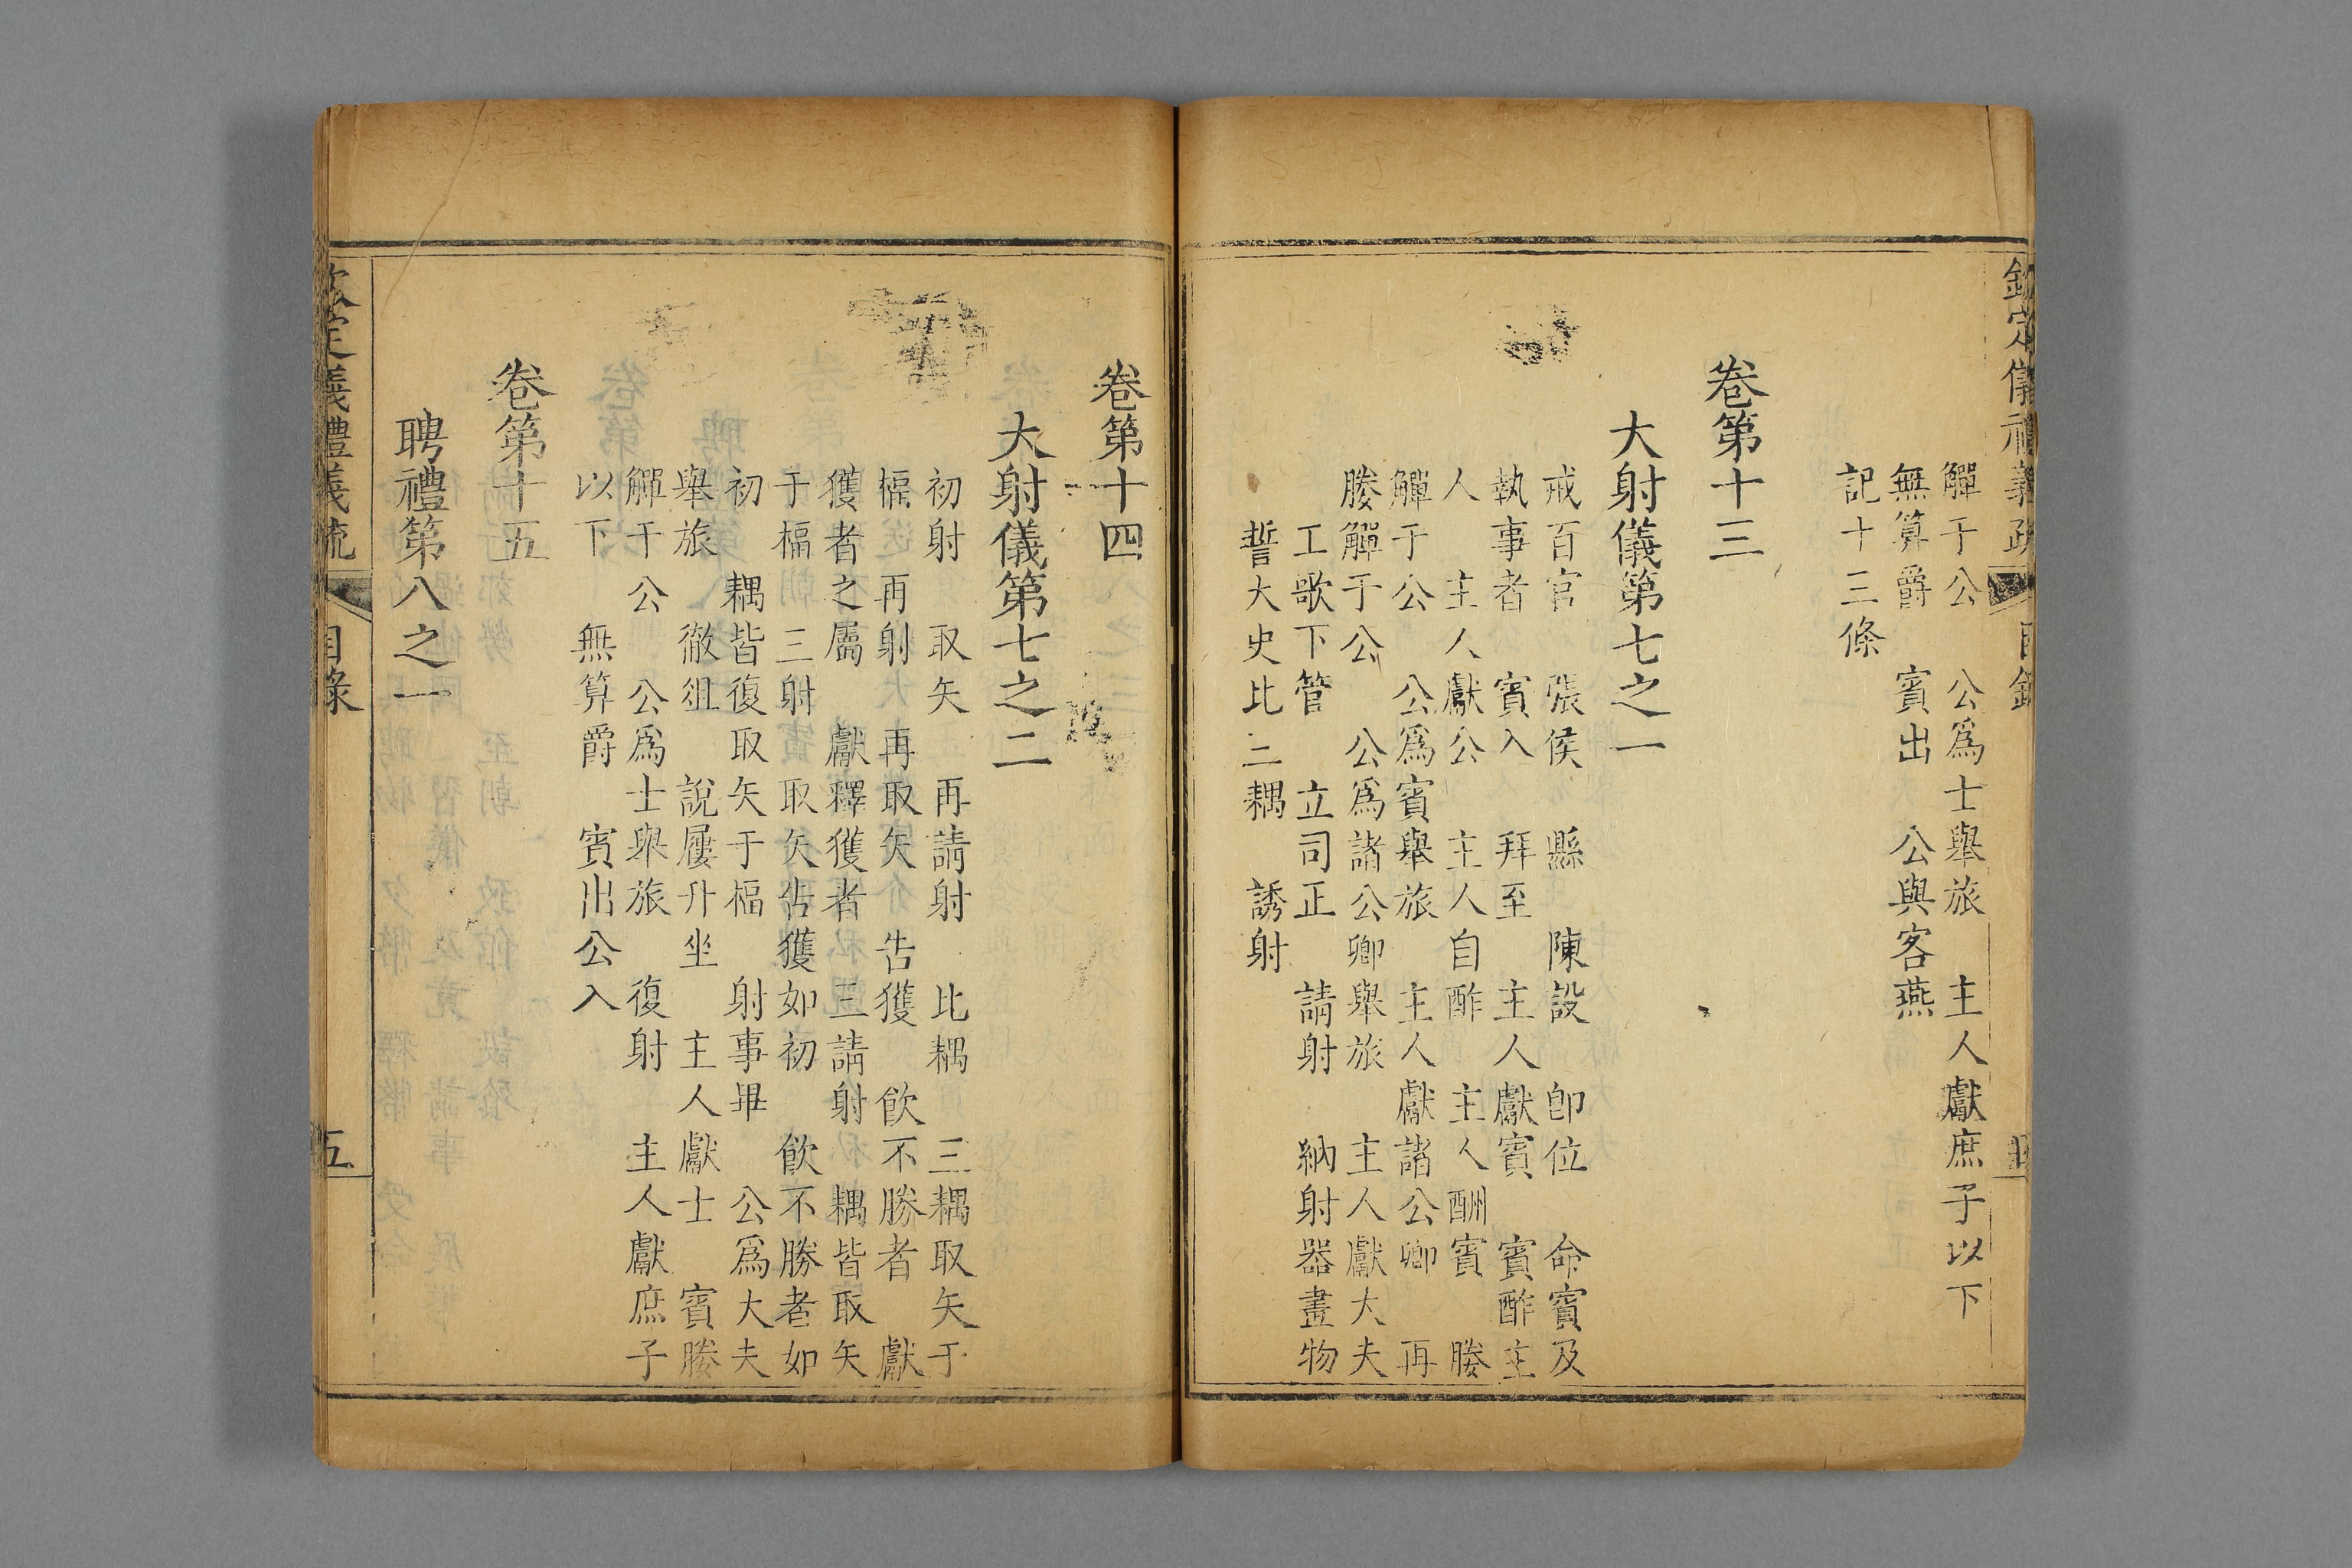 欽定儀禮義疏 目錄 五
觶于公 公爲士舉旅 主人獻庶子以下
無算爵 賓出 公與客燕
記十三條
卷第十三
大射儀第七之一
戒百官 張侯 縣 陳設 卽位 命賓及
執事者 賓入 拜至 主人獻賓 賓酢主
人 主人獻公 主人自酢 主人酬賓 媵
觶于公 公爲賓舉旅 主人獻諸公卿 再
媵觶于公 公爲諸公卿舉旅 主人獻大夫
工歌下管 立司正 請射 納射器畫物
誓大史比三耦 誘射
卷第十四
大射儀第七之二
初射 取矢 再請射 比耦 三耦取矢于
楅 再射 再取矢 告獲 飲不勝者 獻
獲者之屬 獻釋獲者 三請射 耦皆取矢
于楅 三射 取矢告獲如初 飲不勝者如
初 耦皆復取矢于楅 射事畢 公爲大夫
舉旅 徹俎 說屨升坐 主人獻士 賓媵
觶于公 公爲士舉旅 復射 主人獻庶子
以下 無算爵 賓出公入
卷第十五
聘禮第八之一
欽定儀禮義疏 目錄 五